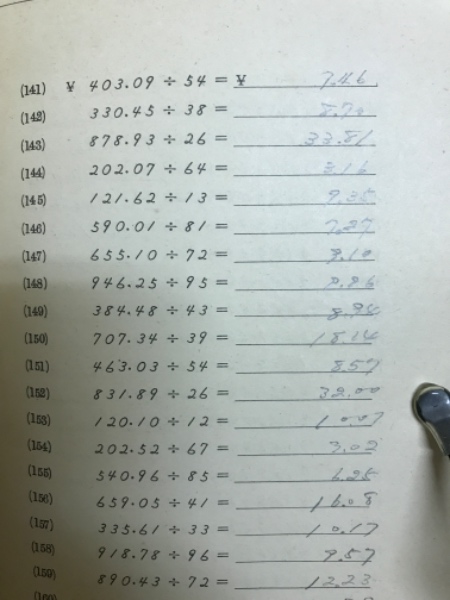 (141) ¥ 403.09 ÷ 54 = ¥ 7.46
(142) 330.45 ÷ 38 = 8.70
(143) 878.93 ÷ 26 = 33.81
(144) 202.07 ÷ 64 = 3.16
(145) 121.62 ÷ 13 = 9.35
(146) 590.01 ÷ 81 =
(147) 655.10 ÷ 72 = 9.10
(148) 946.25 ÷ 95 =
(149) 384.48 ÷ 43 = 8.94
(150) 707.34 ÷ 39 = 18.14
(151) 463.03 ÷ 54 = 8.57
(152) 831.89 ÷ 26 = 32.00
(153) 120.10 ÷ 12 =
(154) 202.52 ÷ 67 = 3.02
(155) 540.96 ÷ 85 =
(156) 659.05 ÷ 41 = 16.08
(157) 335.61 ÷ 33 = 10.17
(158) 918.78 ÷ 96 = 9.57
(159) 890.43 ÷ 72 = 12.23